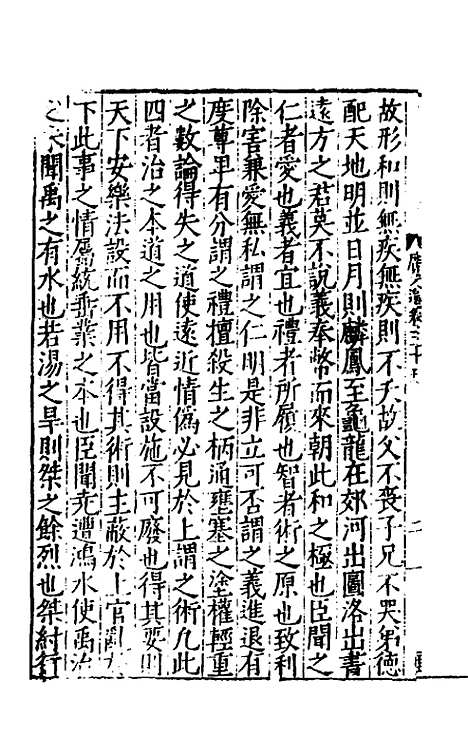 故形和則無疾無疾則不夭故父不喪子兄不哭弟德
配天地明並日月則麟鳳至龜龍在郊河出圖洛出書
遠方之君莫不說義奉幣而來朝此和之極也臣聞之
仁者愛也義者宜也禮者所履也智者術之原也致利
除害兼愛無私謂之仁明是非立可否謂之義進退有
度尊卑有分謂之禮擅殺生之柄通壅塞之塗權輕重
之數論得失之道使遠近情僞必見於上謂之術凡此
四者治之本道之用也皆當設施不可廢也得其要則
天下安樂法設而不用不得其術則主蔽於上官亂
下此事之情屬統垂業之本也臣聞堯遭鴻水使禹治
之 聞禹之有水也若湯之旱則桀之餘烈也桀紂行